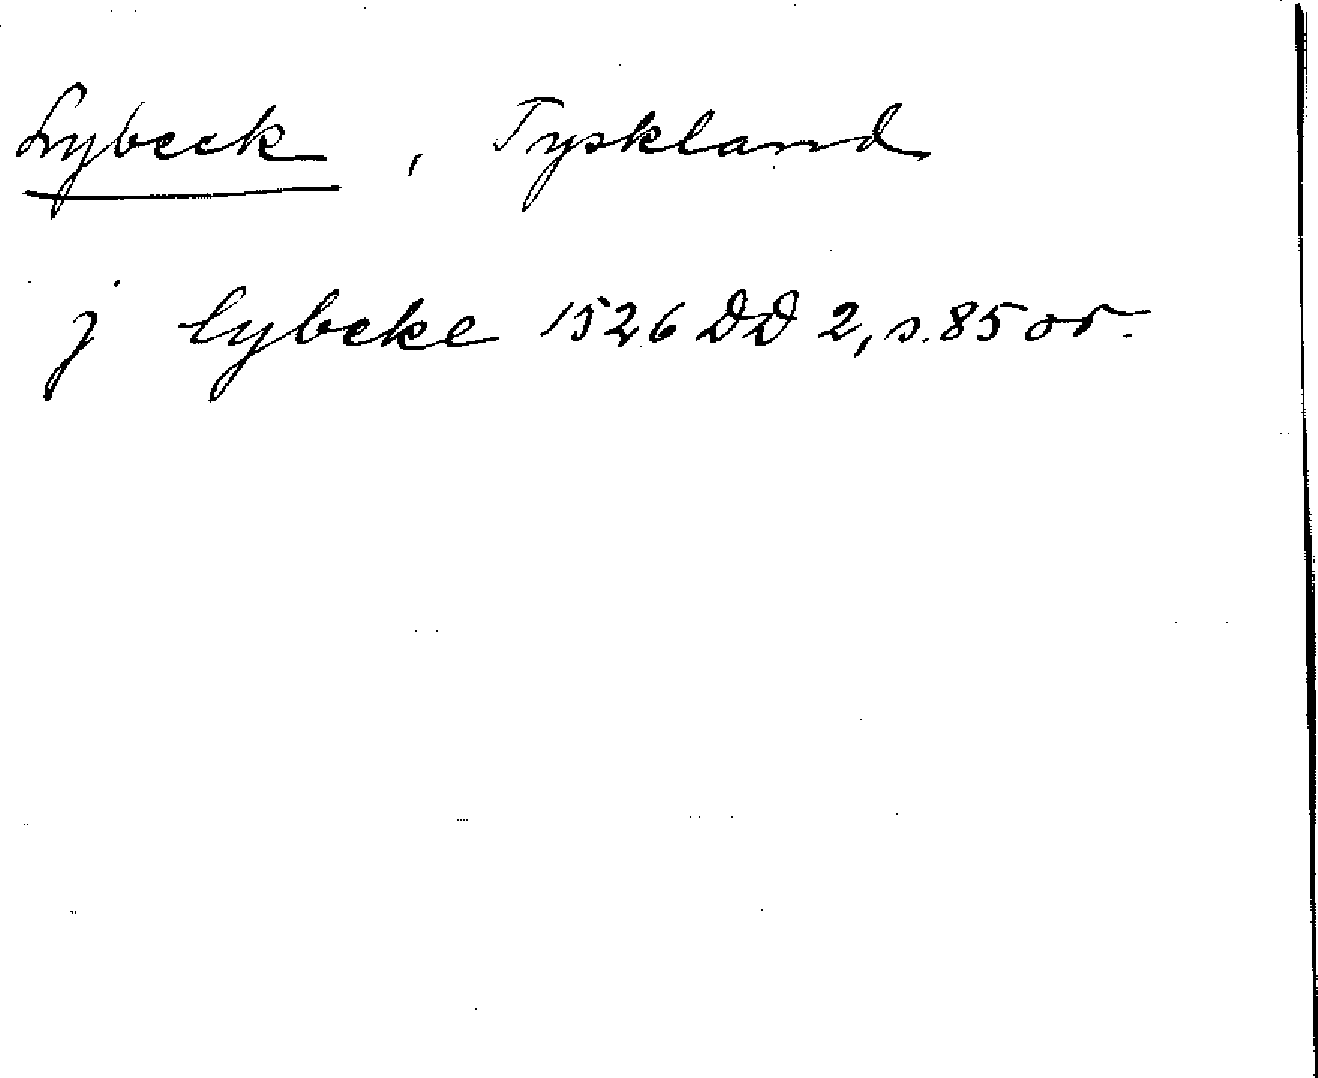 Lybeck, Tyskland
j lybeke 1526 DD 2, s. 85 or.